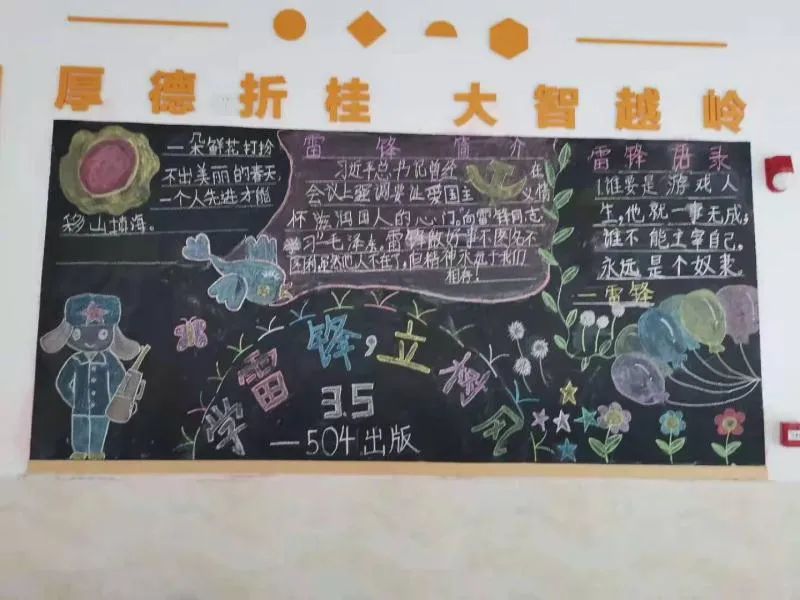 厚德折桂 大智越岭
一朵鲜花打扮
不出美丽的春天
一个人先进才能
移山填海。
雷锋简介
习近平总书记曾经 在
会议上强调要让爱国主义情
怀 润国人的心门,向雷锋同志
学习"毛泽东,雷锋做好事不图名不
图利虽然他人不在了,但精神永 于我们
相存!
雷锋语录
1.谁要是游戏人
生,他就一事无成,
谁不能主宰自己,
永远是个奴隶。
—雷锋
学雷锋,立
3.5
—504出版